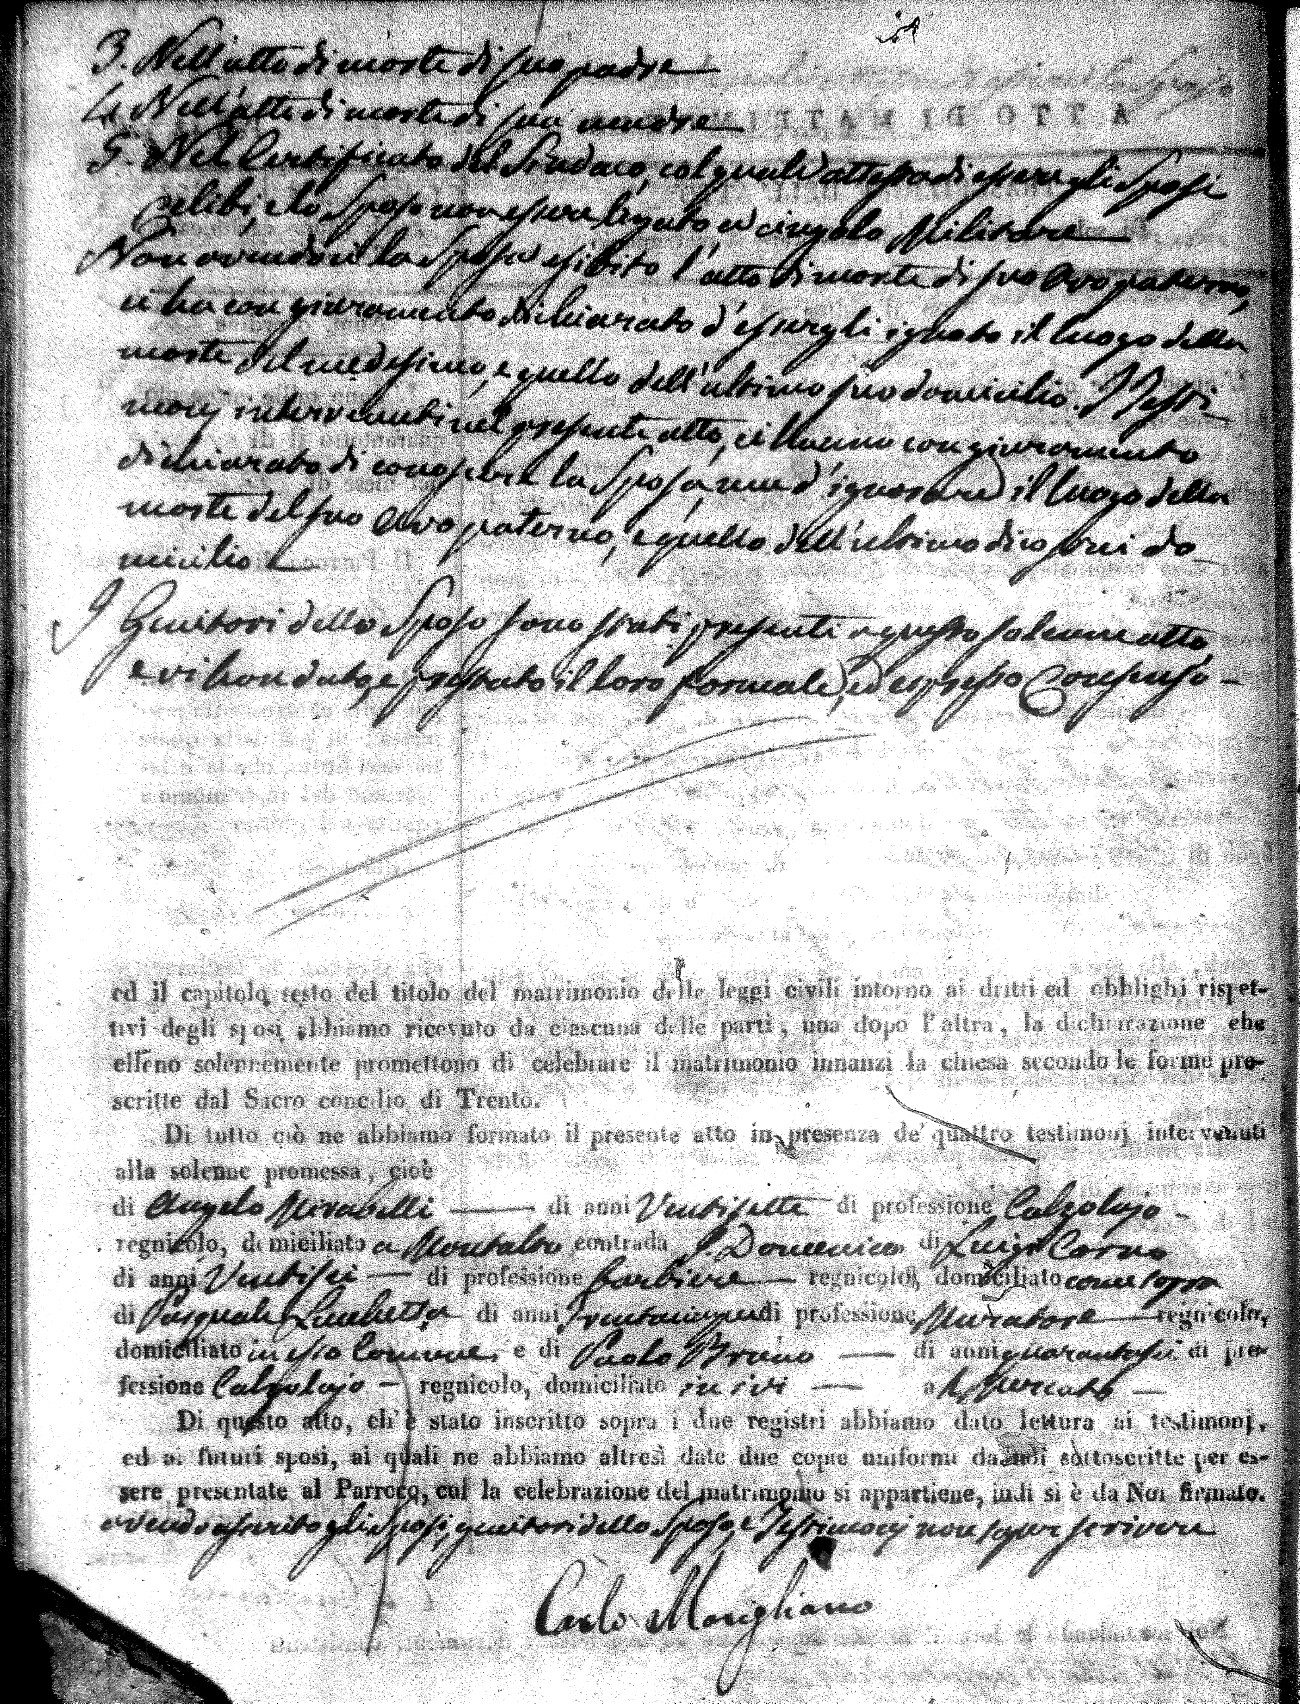 3. Nell'atto di morte di suo padre
4. Nell'atto di morte di sua madre
5. Nel Certificato del Sindaco, col quale attesta di essere gli Sposi
celibi, e lo Sposo non essere ligato a cingolo Militare
Non avendoci la Sposa esibito l'atto di morte di suo avo paterno,
ci ha con giuramento dichiarato d'essergli ignoto il luogo della
morte del medesimo, e quello dell'ultimo suo domicilio. I Testi-
monj intervenuti nel presente atto, ci hanno con giuramento
dichiarato di conoscere la Sposa, ma d'ignorare il luogo della
morte del suo avo paterno, e quello dell'ultimo di costui do-
micilio
I Genitori dello Sposo sono stati presenti a questo solenne atto,
e vi han dato, e prestato il loro formale, ed espresso Consenso -
ed il capitolo sesto del titolo del matrimonio delle leggi civili intorno ai dritti ed obblighi rispet-
tivi degli sposi abbiamo ricevuto da ciascuna delle parti, una dopo l'altra, la dichiarazione che
elleno solennemente promettono di celebrare il matrimonio innanzi la chiesa secondo le forme pre-
scritte dal Sacro concilio di Trento.
Di tutto ciò ne abbiamo formato il presente atto in presenza de' quattro testimonj intervenuti
alla solenne promessa, cioè
di Angelo Mirabelli di anni Ventisette di professione Calzolajo
regnicolo, domiciliato a Montalto contrada S. Domenico di Luigi Corno
di anni Ventisei di professione barbiere regnicolo, domiciliato come sopra
di Pasquale di anni trentacinque di professione Muratore regnicolo,
domiciliato in esso Comune, e di Paolo Bruno di anni quarantasei di pro-
fessione Calzolajo regnicolo, domiciliato in ivi
Di questo atto, ch'è stato inscritto sopra i due registri abbiamo dato lettura ai testimonj,
ed ai futuri sposi, ai quali ne abbiamo altresì date due copie uniformi da noi sottoscritte per es-
sere presentate al Parroco, cui la celebrazione del matrimonio si appartiene, indi si è da Noi firmato.
avendo asserito gli Sposi, genitori dello Sposo, e Testimonj non saper scrivere
Carlo Marigliano